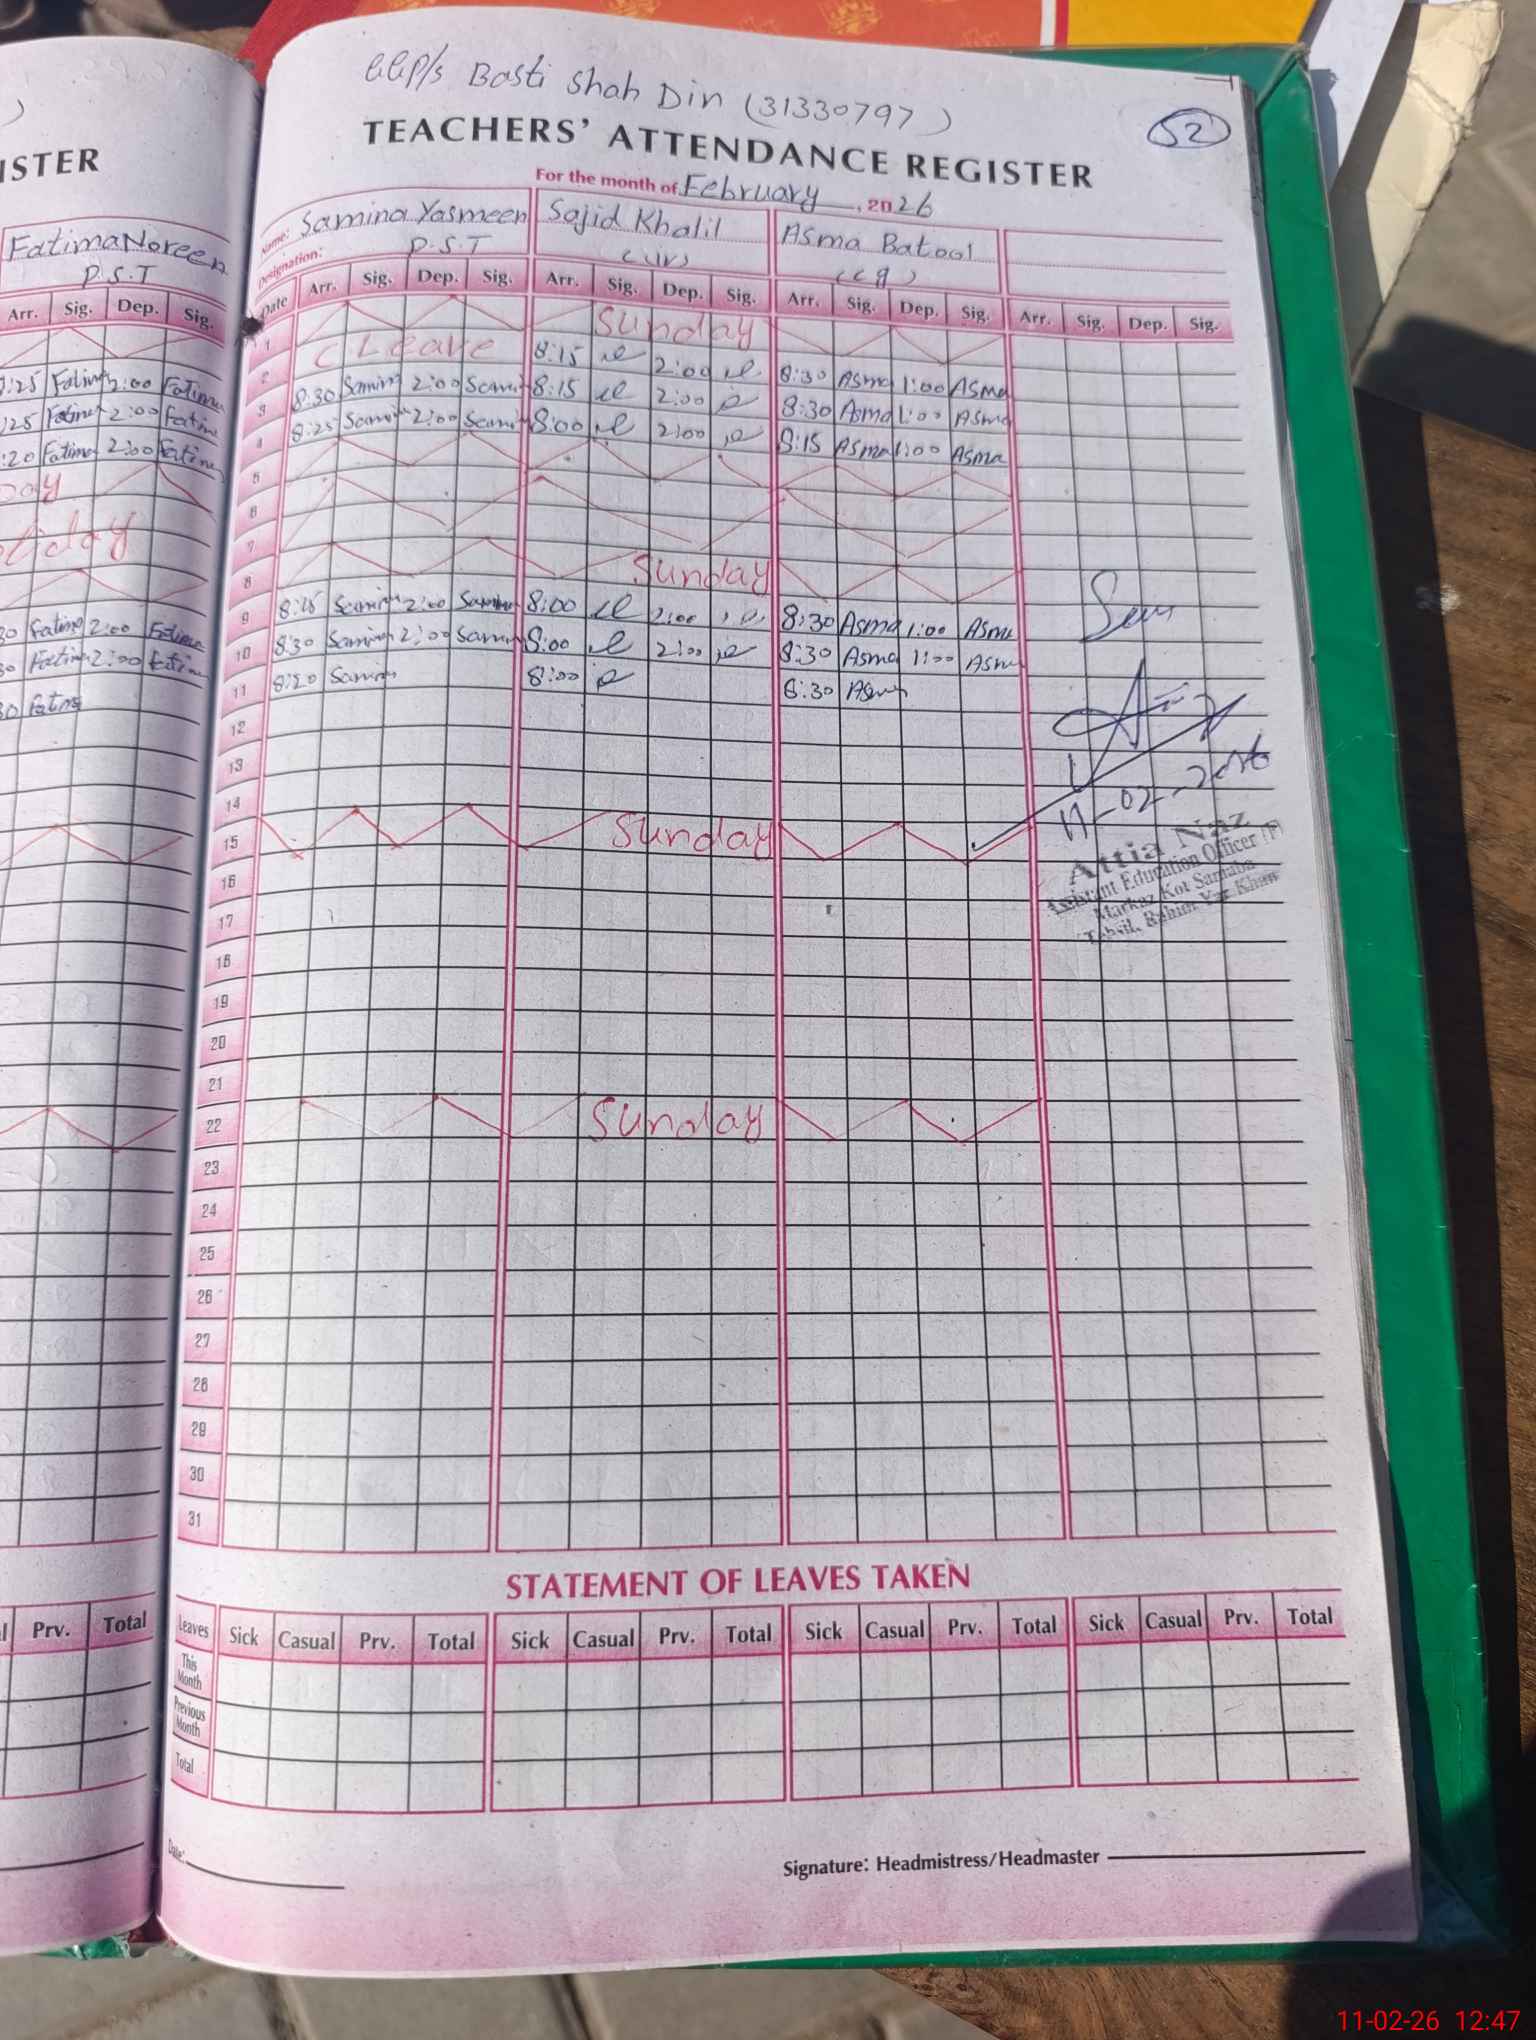 GGP/s Basti Shah Din (31330797)
52
TEACHERS' ATTENDANCE REGISTER
For the month of February, 2026
Name: Samina Yasmeen Sajid Khalil Asma Batool
Designation: P.S.T
Date Arr. Sig. Dep. Sig. Arr. Sig. Dep. Sig. Arr. Sig. Dep. Sig. Arr. Sig. Dep. Sig.
1 Sunday
2 C Leave 8:15 2:00 8:30 Asma 1:00 Asma
3 8:30 Samina 2:00 8:15 2:00 8:30 Asma 1:00 Asma
4 8:25 Samina 2:00 8:00 2:00 8:15 Asma 1:00 Asma
5
6
7
8 Sunday
9 8:15 Samina 2:00 Samina 8:00 2:00 8:30 Asma 1:00 Asma
10 8:30 Samina 2:00 Samina 8:00 2:00 8:30 Asma 1:00 Asma
11 8:20 Samina 8:00 8:30 Asma
12
13
14
15 Sunday
16
17
18
19
20
21
22 Sunday
23
24
25
26
27
28
29
30
31
11-02-2026
Attia Naz
Assistant Education Officer (F)
Markaz Kot Samaba
Tehsil, Rahim Yar Khan
STATEMENT OF LEAVES TAKEN
Leaves Sick Casual Prv. Total Sick Casual Prv. Total Sick Casual Prv. Total Sick Casual Prv. Total
This Month
Previous Month
Total
Date:
Signature: Headmistress/Headmaster
ISTER
Fatima Noreen
P.S.T
Arr. Sig. Dep. Sig.
:25 Fatima 2:00 Fatima
:25 Fatima 2:00 Fatima
:20 Fatima 2:00 Fatima
day
30 Fatima 2:00 Fatima
30 Fatima 2:00 Fatima
30 Fatima
Prv. Total
11-02-26 12:47